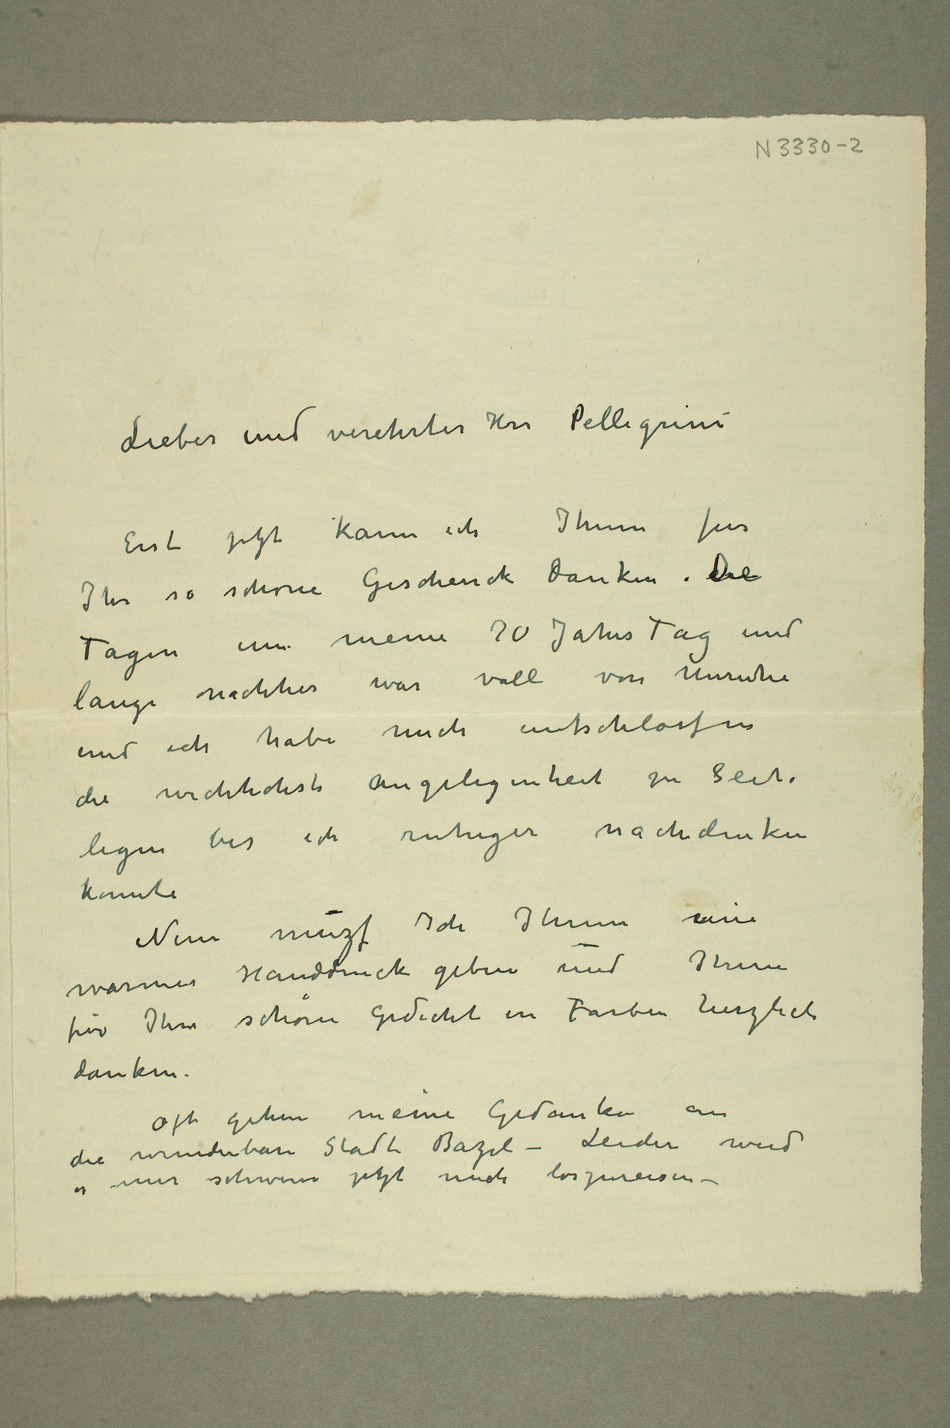 N 3330-2
Lieber und verehrter Herr Pellegrini
Erst jetzt kann ich Ihnen für
Ihr so schöne Geschenck danken. Die
Tagen um meine 70 Jahrs Tag und
lange nachher war voll von Unruhe
und ich habe mich entschlossen
die wichtichste Angelegenheit zu Seite
legen bis ich ruhiger nachdenken
konnte
Nun muszf Ich Ihnen eine
warmer Handdruck geben und Ihnen
für Ihre schöne Gedicht in Farben herzlich
danken.
Oft gehen meine Gedanken an
die wunderbare Stadt Bazel – Leider wird
es mir schwer jetzt mich loszureisen –